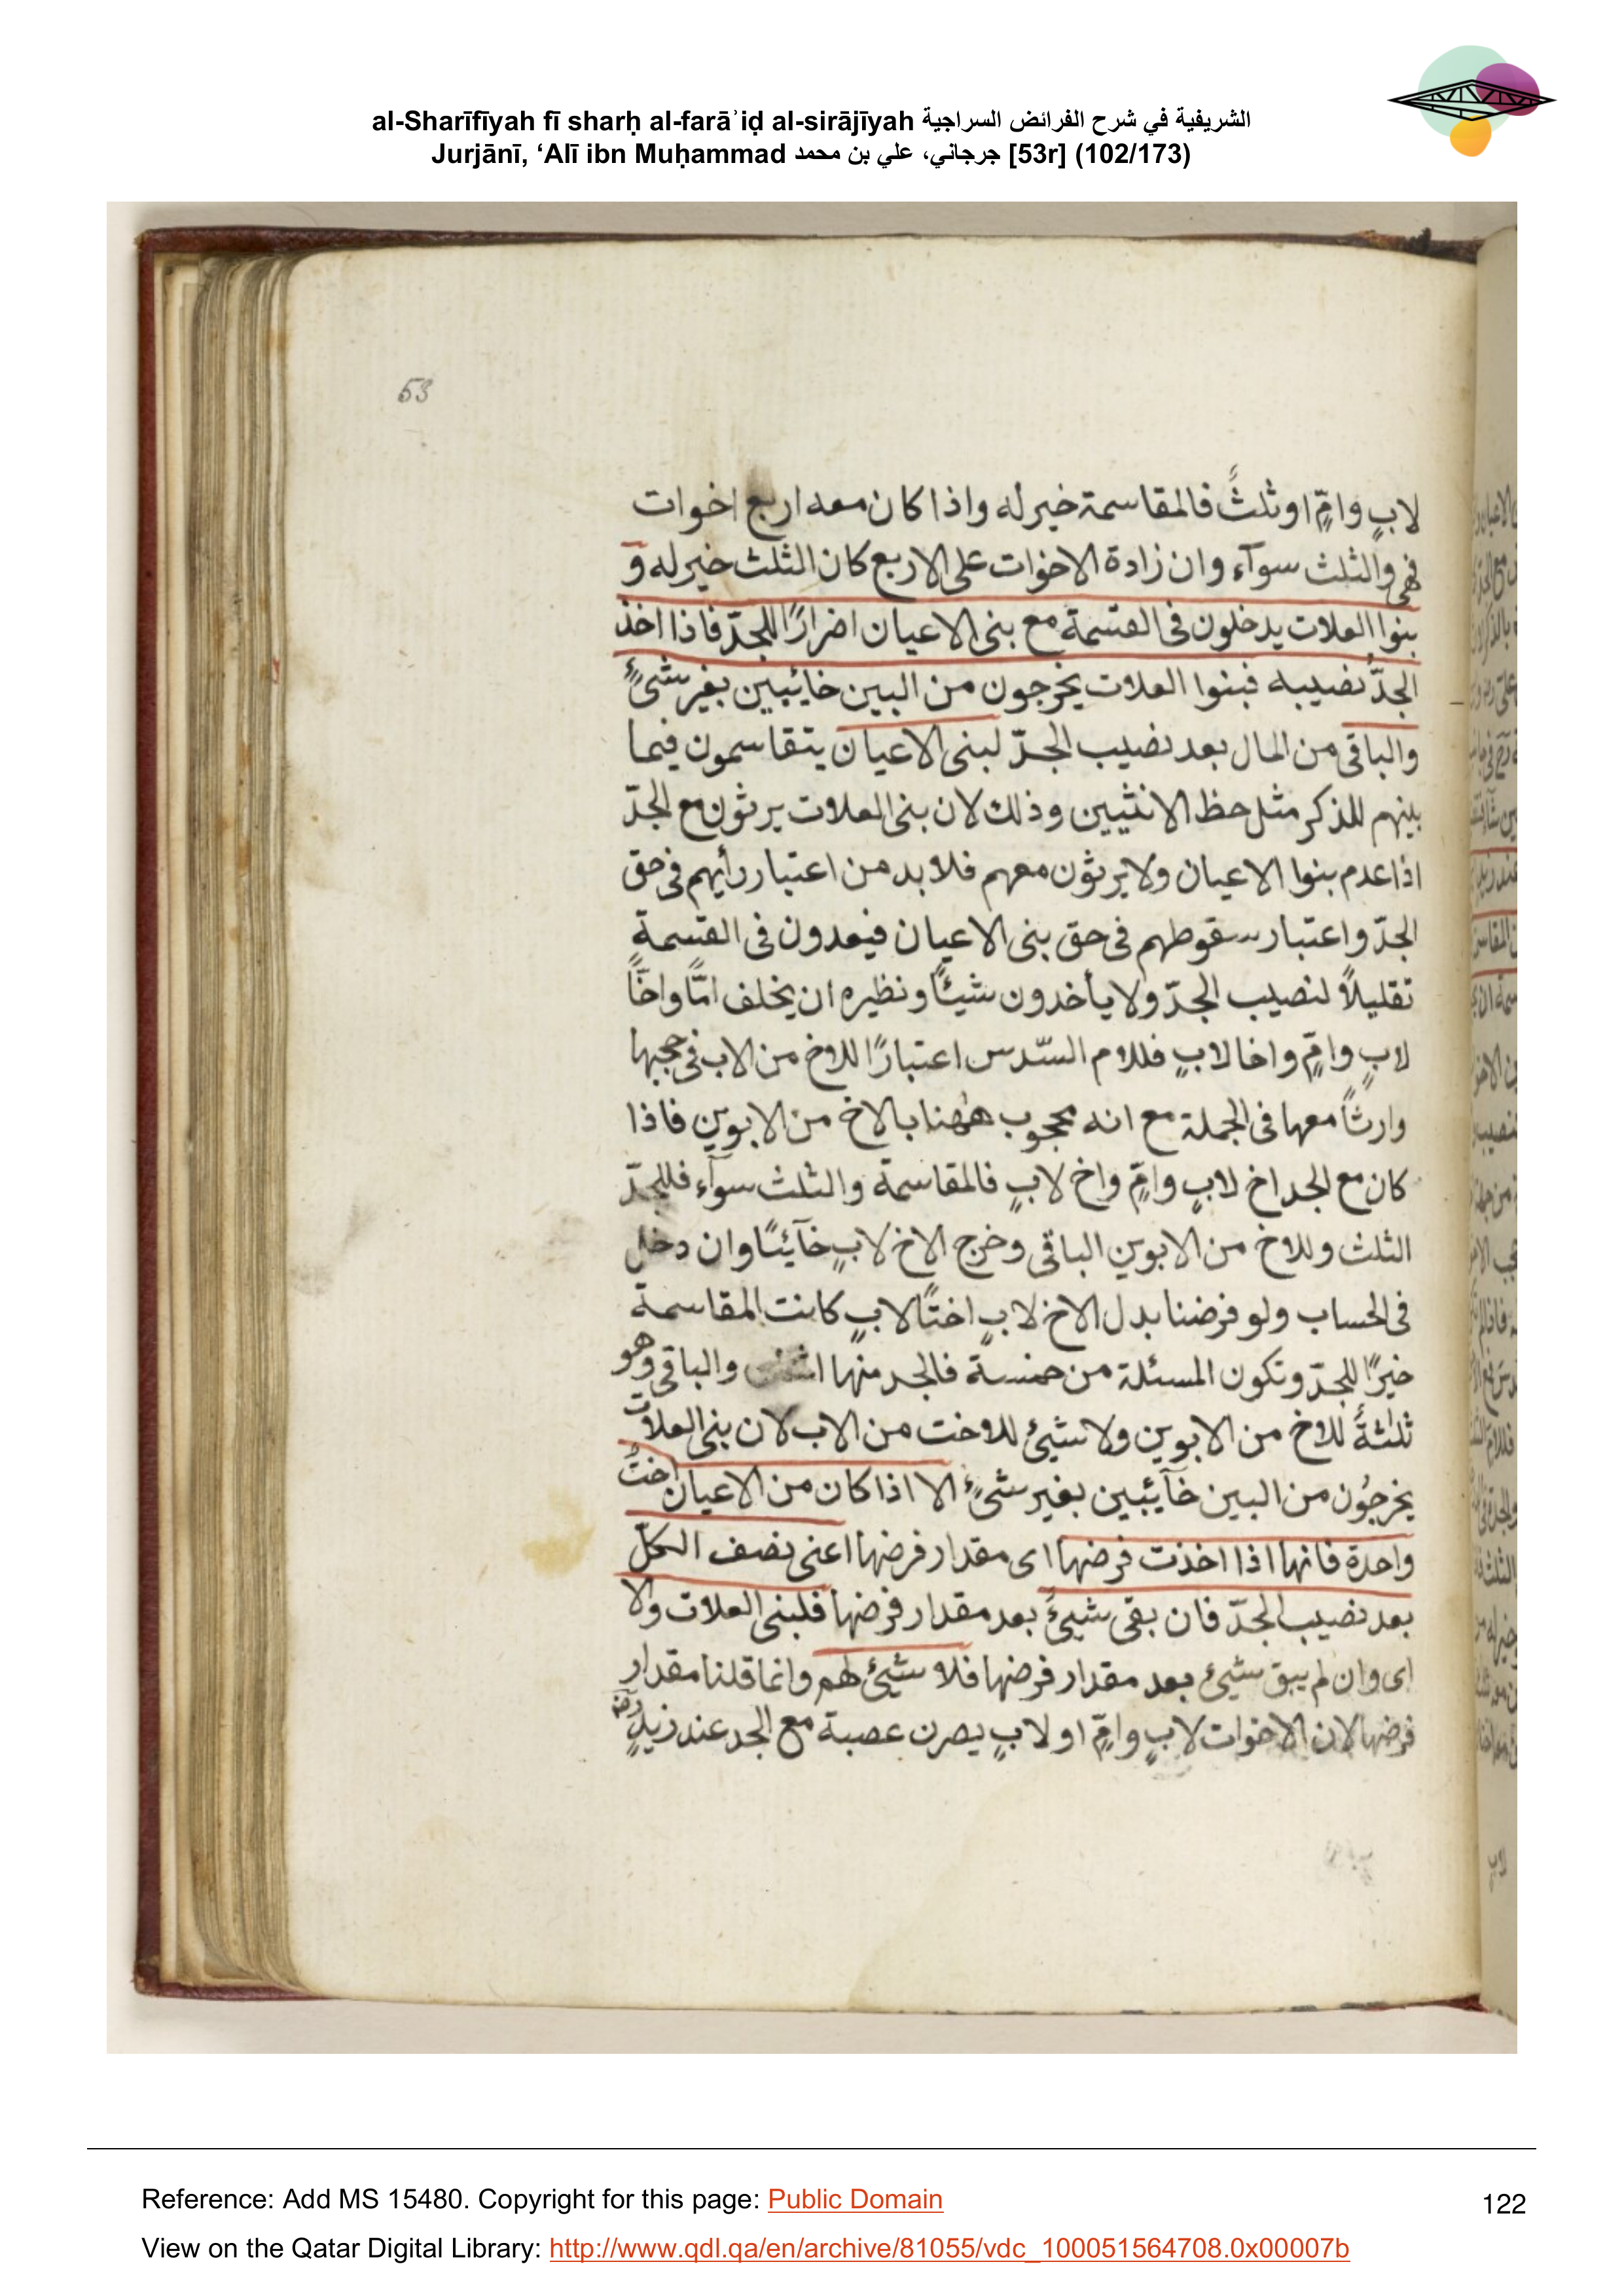 al-Sharīfīyah fī sharḥ al-farāʾiḍ al-sirājīyah الشريفية في شرح الفرائض السراجية
Jurjānī, ‘Alī ibn Muḥammad جرجاني، علي بن محمد [53r] (102/173)
53
لابٍ وامٍّ او ثلثٌ فالمقاسمة خير له واذا كان معه اربع اخوات
فهى والثلث سوآء وان زادة الاخوات على الاربع كان الثلث خير له و
بنوا العلات يدخلون فى القسمة مع بنى الاعيان اضرارًا للجدّ فاذا اخذ
الجدّ نصيبه فبنوا العلات يخرجون من البين خائبين بغير شىءٍ
والباقى من المال بعد نصيب الجدّ لبنى الاعيان يتقاسمون فيما
بينهم للذكر مثل حظ الانثيين وذلك لان بنى العلات يرثون مع الجدّ
اذا عدم بنوا الاعيان ولا يرثون معهم فلا بد من اعتبار رأيهم فى حق
الجدّ واعتبار سقوطهم فى حق بنى الاعيان فيعدون فى القسمة
تقليلاً لنصيب الجدّ ولا يأخدون شيئاً ونظيره ان يخلف امًّا واخًا
لابٍ وامٍّ واخا لابٍ فللام السّدس اعتبارًا للاخ من الاب فى حجبها
وارثاً معها فى الجملة مع انه محجوب ههنا بالاخ من الابوين فاذا
كان مع الجد اخ لابٍ وامٍّ واخ لابٍ فالمقاسمة والثلث سوآء فللجدّ
الثلث وللاخ من الابوين الباقى وخرج الاخ لابٍ خآئبًا وان دخل
فى الحساب ولو فرضنا بدل الاخ لابٍ اختًا لابٍ كانت المقاسمة
خيرًا للجدّ وتكون المسئلة من خمسة فالجد منها والباقى وهو
ثلثةٌ للاخ من الابوين ولا شيئ للاخت من الاب لان بنى العلات
يخرجُون من البين خآئبين بغير شىءٍ الا اذا كان من الاعيان اختٌ
واحدة فانها اذا اخذت فرضها اى مقدار فرضها اعنى نصف الكلّ
بعد نصيب الجدّ فان بقى شيئٌ بعد مقدار فرضها فلبنى العلات والا
اى وان لم يبق شيئ بعد مقدار فرضها فلا شيئ لهم وانما قلنا مقدار
فرضها لان الاخوات لابٍ وامٍّ او لابٍ يصرن عصبة مع الجد عند زيدٍ
Reference: Add MS 15480. Copyright for this page: Public Domain
122
View on the Qatar Digital Library: http://www.qdl.qa/en/archive/81055/vdc_100051564708.0x00007b